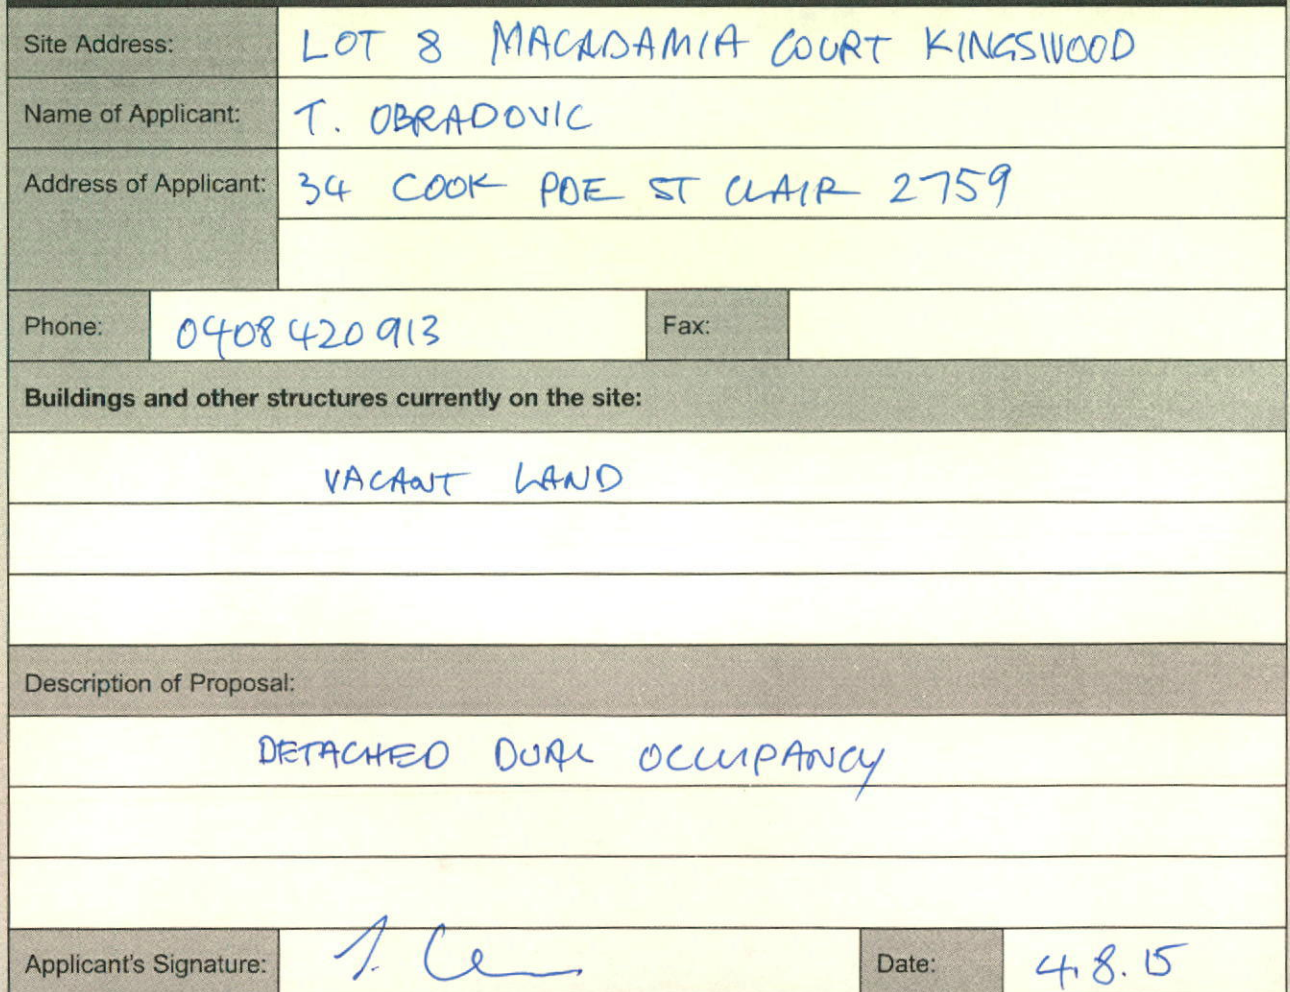 Site Address: LOT 8 MACADAMIA COURT KINGSWOOD
Name of Applicant: T. OBRADOVIC
Address of Applicant: 34 COOK PDE ST CLAIR 2759
Phone: 0408 420 913 Fax:
Buildings and other structures currently on the site:
VACANT LAND
Description of Proposal:
DETACHED DUAL OCCUPANCY
Applicant's Signature: Date: 4.8.15